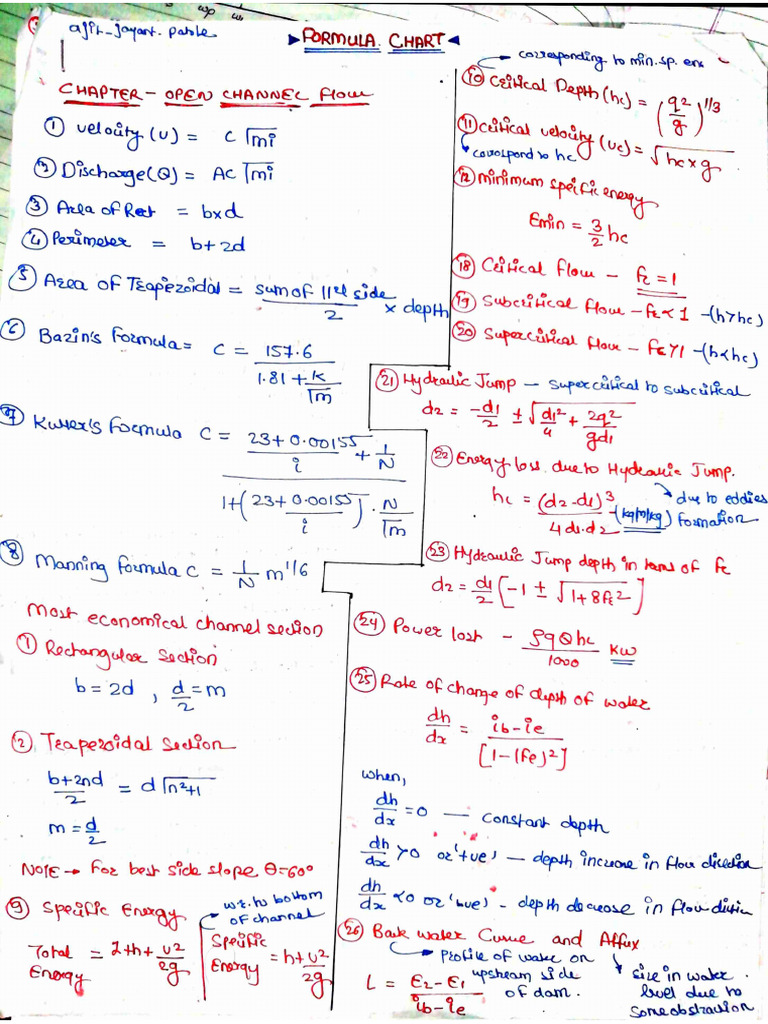 wp
w
ajit-jayant-patile
FORMULA CHART
CHAPTER - OPEN CHANNEL Flow
① Velocity (v) = C √mi
② Discharge (Q) = AC √mi
③ Area of Rect = b×d
④ Perimeter = b+2d
⑤ Area of Trapizoidal = sum of 11el side / 2 × depth
⑥ Bazin's Formula = C = 157.6 / (1.81 + K/√m)
⑦ Kutter's Formula C = (23 + 0.00155/i + 1/N) / (1 + (23 + 0.00155/i) · N/√m)
⑧ Manning formula C = 1/N m^1/6
Most economical channel section
① Rectangular Section
b = 2d , d/2 = m
② Trapezoidal Section
(b+2nd)/2 = d √n²+1
m = d/2
NOTE → For best side slope θ=60°
⑨ Specific Energy
w.r.to bottom
of channel
Total Energy = z+h+v²/2g
Specific Energy = h+v²/2g
corresponding to min. sp. ene
⑩ Critical Depth (hc) = (q²/g)^1/3
⑪ Critical velocity (vc) = √hc×g
correspond to hc
⑫ minimum specific energy
Emin = 3/2 hc
⑱ Critical flow - fr = 1
⑲ Subcritical flow - fr < 1 - (h>hc)
⑳ Supercritical flow - fr > 1 - (h<hc)
㉑ Hydraulic Jump - Supercritical to subcritical
d2 = -d1/2 ± √(d1²/4 + 2q²/gd1)
㉒ Energy loss due to Hydraulic Jump.
hL = (d2-d1)³ / 4d1.d2 - (kgm/kg)
due to eddies
formation
㉓ Hydraulic Jump depth in terms of fr
d2 = d1/2 [-1 ± √1+8fr²]
㉔ Power lost - ρgQhL / 1000 KW
㉕ Rate of change of depth of water
dh/dx = (ib-ie) / [1-(fe)²]
when,
dh/dx = 0 — constant depth
dh/dx > 0 or '+ve' — depth increase in flow direction
dh/dx < 0 or '-ve' - depth decrease in flow
㉖ Back water Curve and Afflux
profile of water on
upstream side
of dam.
L = (E2-E1) / (ib-ie)
rise in water
level due to
some obstraction